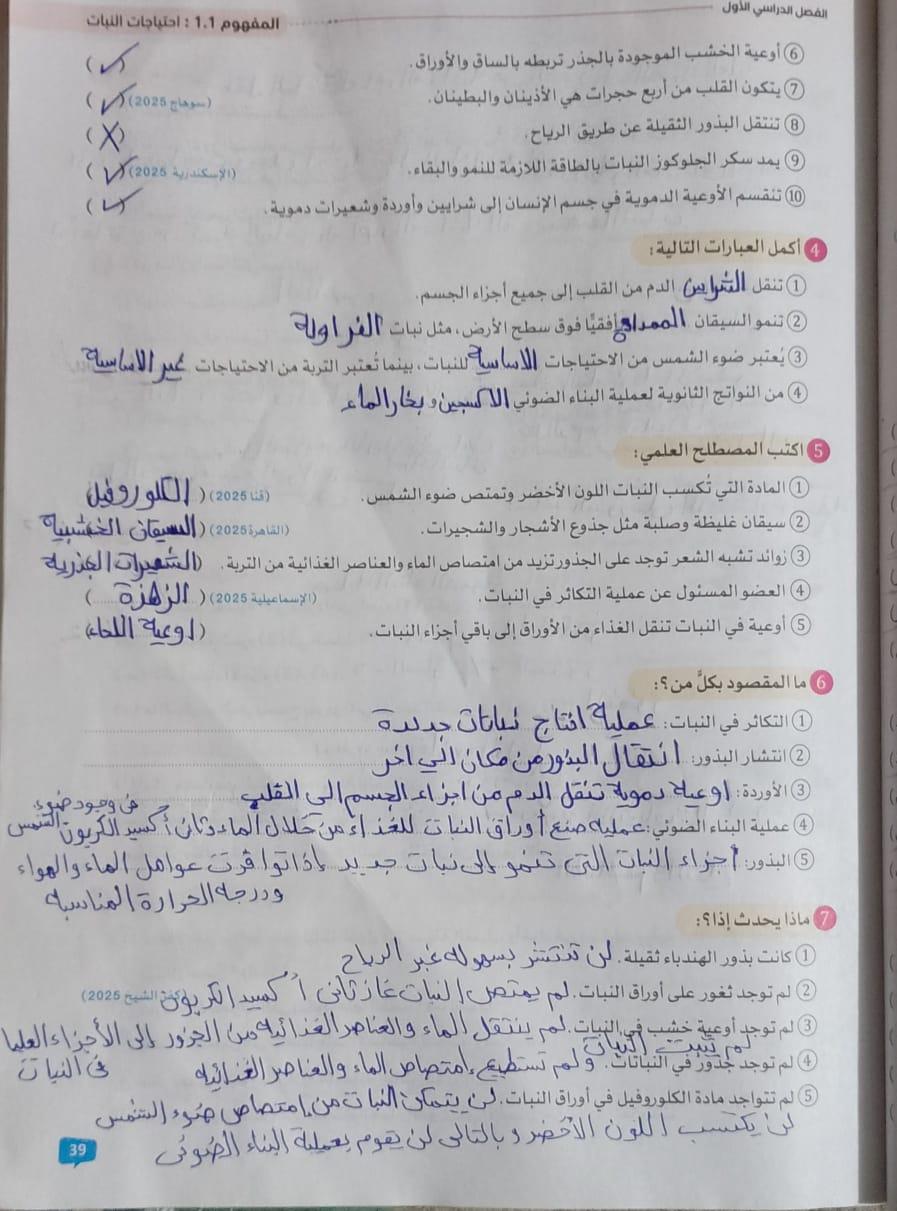 الفصل الدراسي الأول
المفهوم 1.1 : احتياجات النبات
6 أوعية الخشب الموجودة بالجذر تربطه بالساق والأوراق. (✓)
7 يتكون القلب من أربع حجرات هي الأذينان والبطينان. (سوهاج 2025) (✓)
8 تنتقل البذور الثقيلة عن طريق الرياح. (X)
9 يمد سكر الجلوكوز النبات بالطاقة اللازمة للنمو والبقاء. (الإسكندرية 2025) (✓)
10 تنقسم الأوعية الدموية في جسم الإنسان إلى شرايين وأوردة وشعيرات دموية. (✓)
4 أكمل العبارات التالية:
1 تنقل الشرايين الدم من القلب إلى جميع أجزاء الجسم.
2 تنمو السيقان المدادة أفقيًا فوق سطح الأرض، مثل نبات الفراولة
3 يُعتبر ضوء الشمس من الاحتياجات الاساسية للنبات، بينما تُعتبر التربة من الاحتياجات غير الاساسية
4 من النواتج الثانوية لعملية البناء الضوئي الاكسجين و بخار الماء
5 اكتب المصطلح العلمي:
1 المادة التي تُكسب النبات اللون الأخضر وتمتص ضوء الشمس. (قنا 2025) (الكلوروفيل
2 سيقان غليظة وصلبة مثل جذوع الأشجار والشجيرات. (القاهرة 2025) (السيقان الخشبية
3 زوائد تشبه الشعر توجد على الجذور تزيد من امتصاص الماء والعناصر الغذائية من التربة. (الشعيرات الجذرية
4 العضو المسئول عن عملية التكاثر في النبات. (الإسماعيلية 2025) (الزهرة)
5 أوعية في النبات تنقل الغذاء من الأوراق إلى باقي أجزاء النبات. (اوعية اللحاء)
6 ما المقصود بكلٍّ من؟:
1 التكاثر في النبات: عملية انتاج نباتات جديدة
2 انتشار البذور: انتقال البذور من مكان الي اخر
3 الأوردة: اوعية دموية تنقل الدم من اجزاء الجسم الى القلب
4 عملية البناء الضوئي: عملية صنع أوراق النبات للغذاء من خلال الماء وثاني أكسيد الكربون في وجود ضوء الشمس
5 البذور: أجزاء النبات التى تنمو إلى نبات جديد إذا توافرت عوامل الماء والهواء
ودرجة الحرارة المناسبة
7 ماذا يحدث إذا؟:
1 كانت بذور الهندباء ثقيلة. لن تنتشر بسهولة عبر الرياح
2 لم توجد ثغور على أوراق النبات. لم يمتص النبات غاز ثانى أكسيد الكربون (كفر الشيخ 2025)
3 لم توجد أوعية خشب في النبات. لم ينتقل الماء والعناصر الغذائية من الجزور إلى الأجزاء العليا
فى النبات
4 لم توجد جذور في النباتات. لم تثبت النبات و لم تستطيع إمتصاص الماء والعناصر الغذائية
5 لم تتواجد مادة الكلوروفيل في أوراق النبات. لن يتمكن النبات من إمتصاص ضوء الشمس
لن يكتسب اللون الأخضر و بالتالى لن يقوم بعملية البناء الضوئى
39